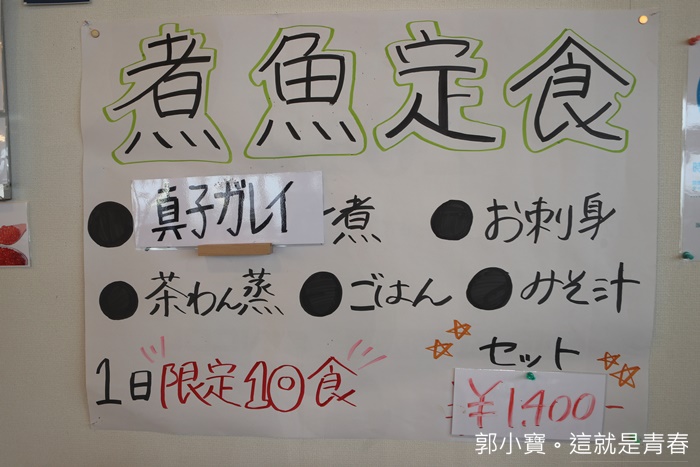 煮魚定食
●真子ガレイ煮 ●お刺身
●茶わん蒸 ●ごはん ●みそ汁
セット
1日限定10食 ¥1.400-
郭小寶。這就是青春